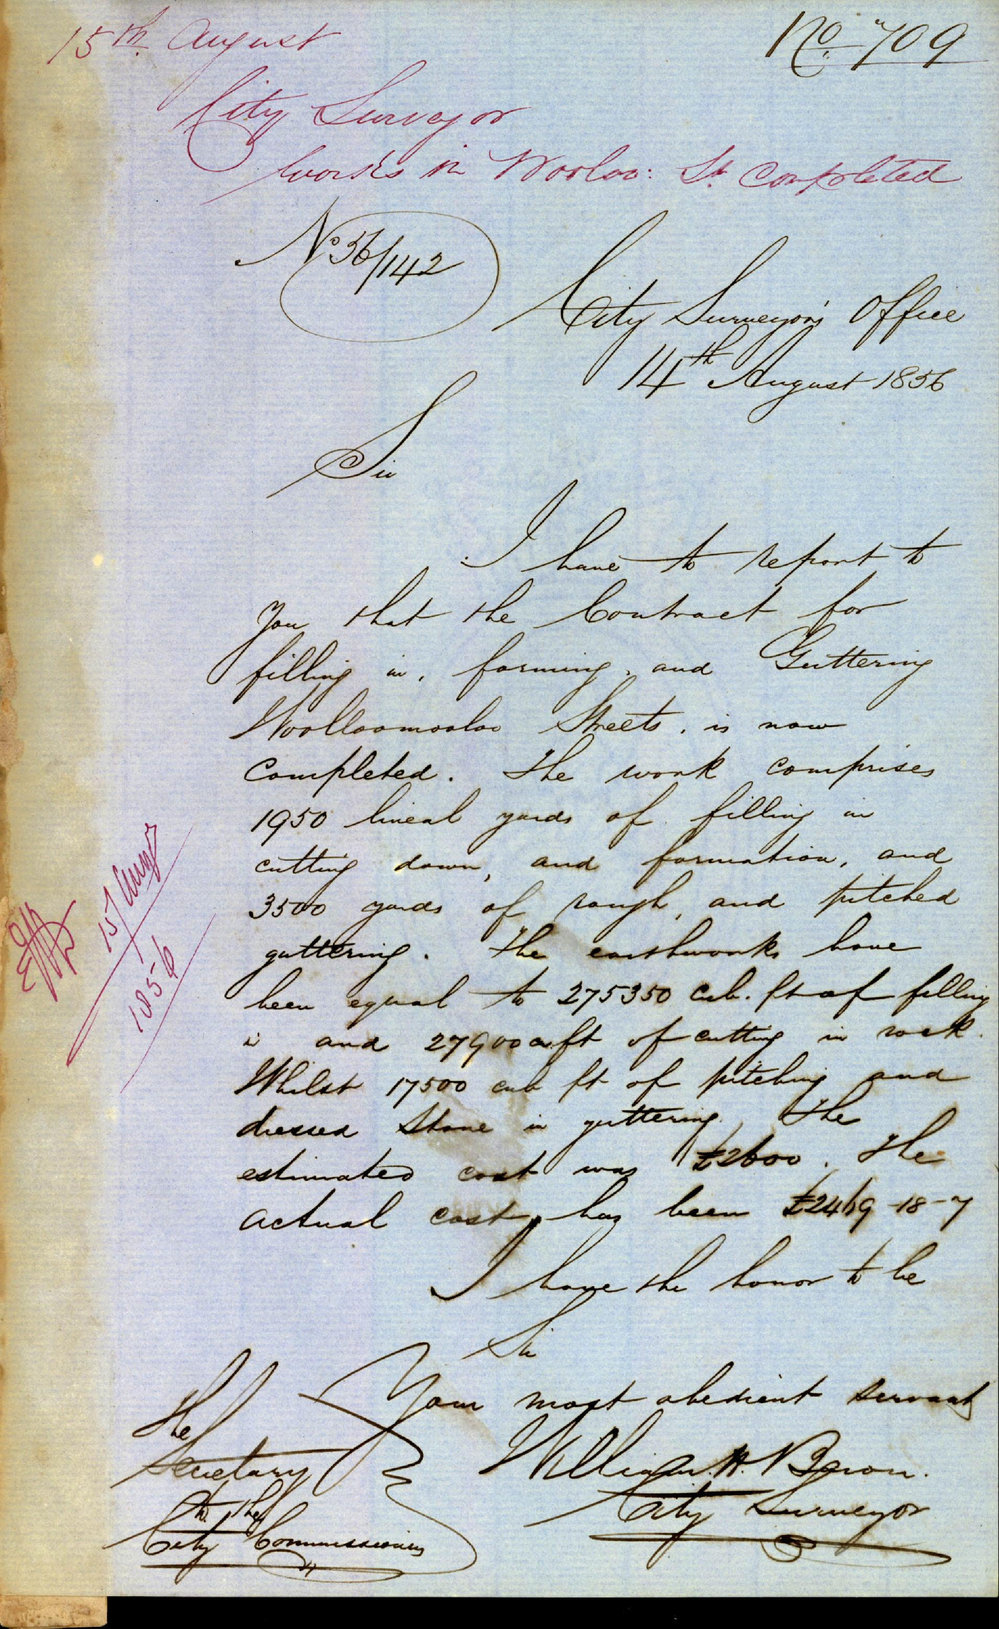 15th August
No 709
City Surveyor
Works in Wooloo: St Completed
No 56/142
City Surveyor's Office
14th August 1856
Sir
I have to report to
You that the Contract for
filling in, forming, and Guttering
Woolloomooloo Streets, is now
Completed. The work comprises
1950 lineal yards of filling in
cutting down, and formation, and
3500 yards of rough, and pitched
guttering. The earthworks have
been equal to 275350 cub. ft of filling
in and 27900 c. ft of cutting in rock.
Whilst 17500 cub ft of pitching and
dressed Stone in guttering. The
estimated cost was £2600. The
actual cost, has been £2469-18-7
I have the honor to be
Sir
Your most obedient servant
William H. Baron.
City Surveyor
The
Secretary
to the
City Commissioners
15/Aug
1856